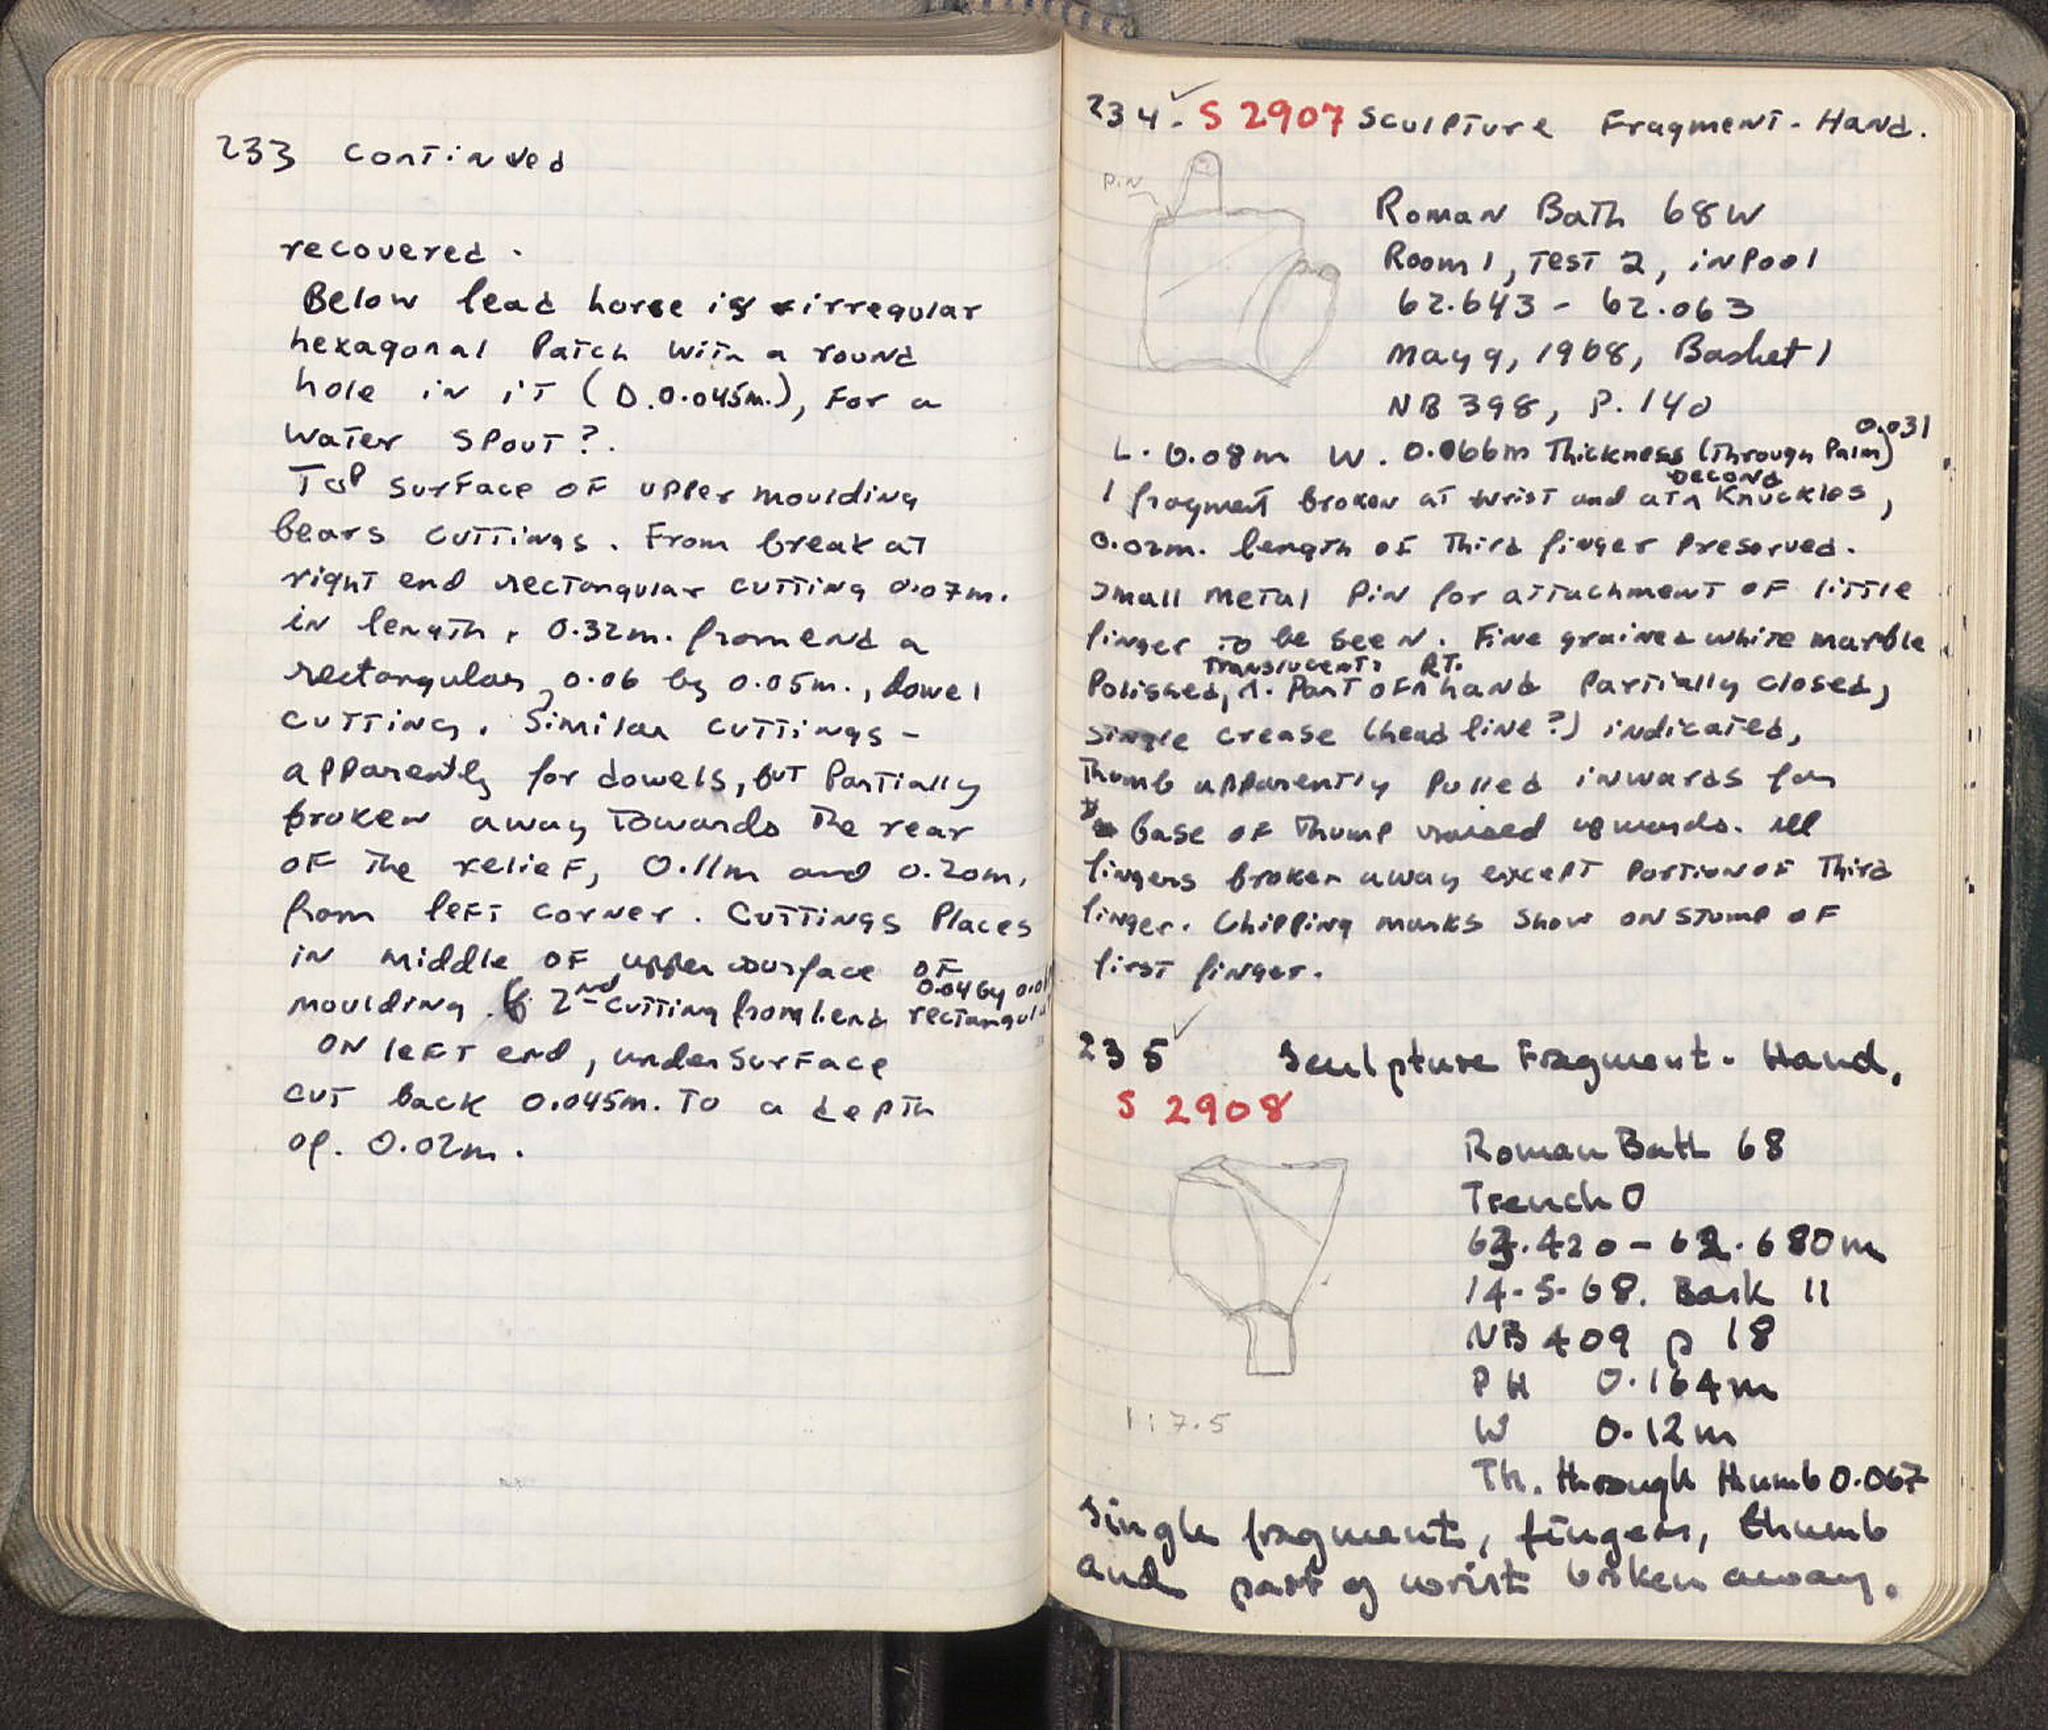 233 continued
recovered.
Below lead horse is irregular
hexagonal Patch with a round
hole in it (D.0.045m.), For a
water spout?.
Top surface of upper moulding
bears cuttings. From break at
right end rectangular cutting 0.07m.
in length, 0.32m. from end a
rectangular, 0.06 by 0.05m., dowel
cutting. Similar cuttings -
apparently for dowels, but Partially
broken away towards the rear
of the relief, 0.11m and 0.20m.
from left corner. Cuttings Places
in middle of upper surface of
moulding. 2nd cutting from l. end rectangular 0.04 by
on left end, under surface
cut back 0.045m. to a depth
of. 0.02m.
234. S 2907 Sculpture Fragment - Hand.
Pin
Roman Bath 68W
Room 1, Test 2, in Pool
62.643 - 62.063
May 9, 1968, Basket 1
NB 398, P. 140
L. 0.08m W. 0.066m Thickness (through Palm) 0.031
1 fragment broken at wrist and at second knuckles,
0.02m. length of third finger preserved.
Small metal Pin for attachment of little
finger to be seen. Fine grained white marble
Polished, translucent. Part of rt. hand Partially closed,
single crease (head line?) indicated,
Thumb apparently pulled inwards for
base of thump raised upwards. All
fingers broken away except portion of third
finger. Chipping marks show on stump of
first finger.
235 Sculpture Fragment - Hand.
S 2908
Roman Bath 68
Trench O
63.420 - 62.680m
14-5-68. Bask 11
NB 409 p 18
PH 0.164m
W 0.12m
Th. through thumb 0.067
1:7.5
Single fragment, fingers, thumb
and part of wrist broken away.